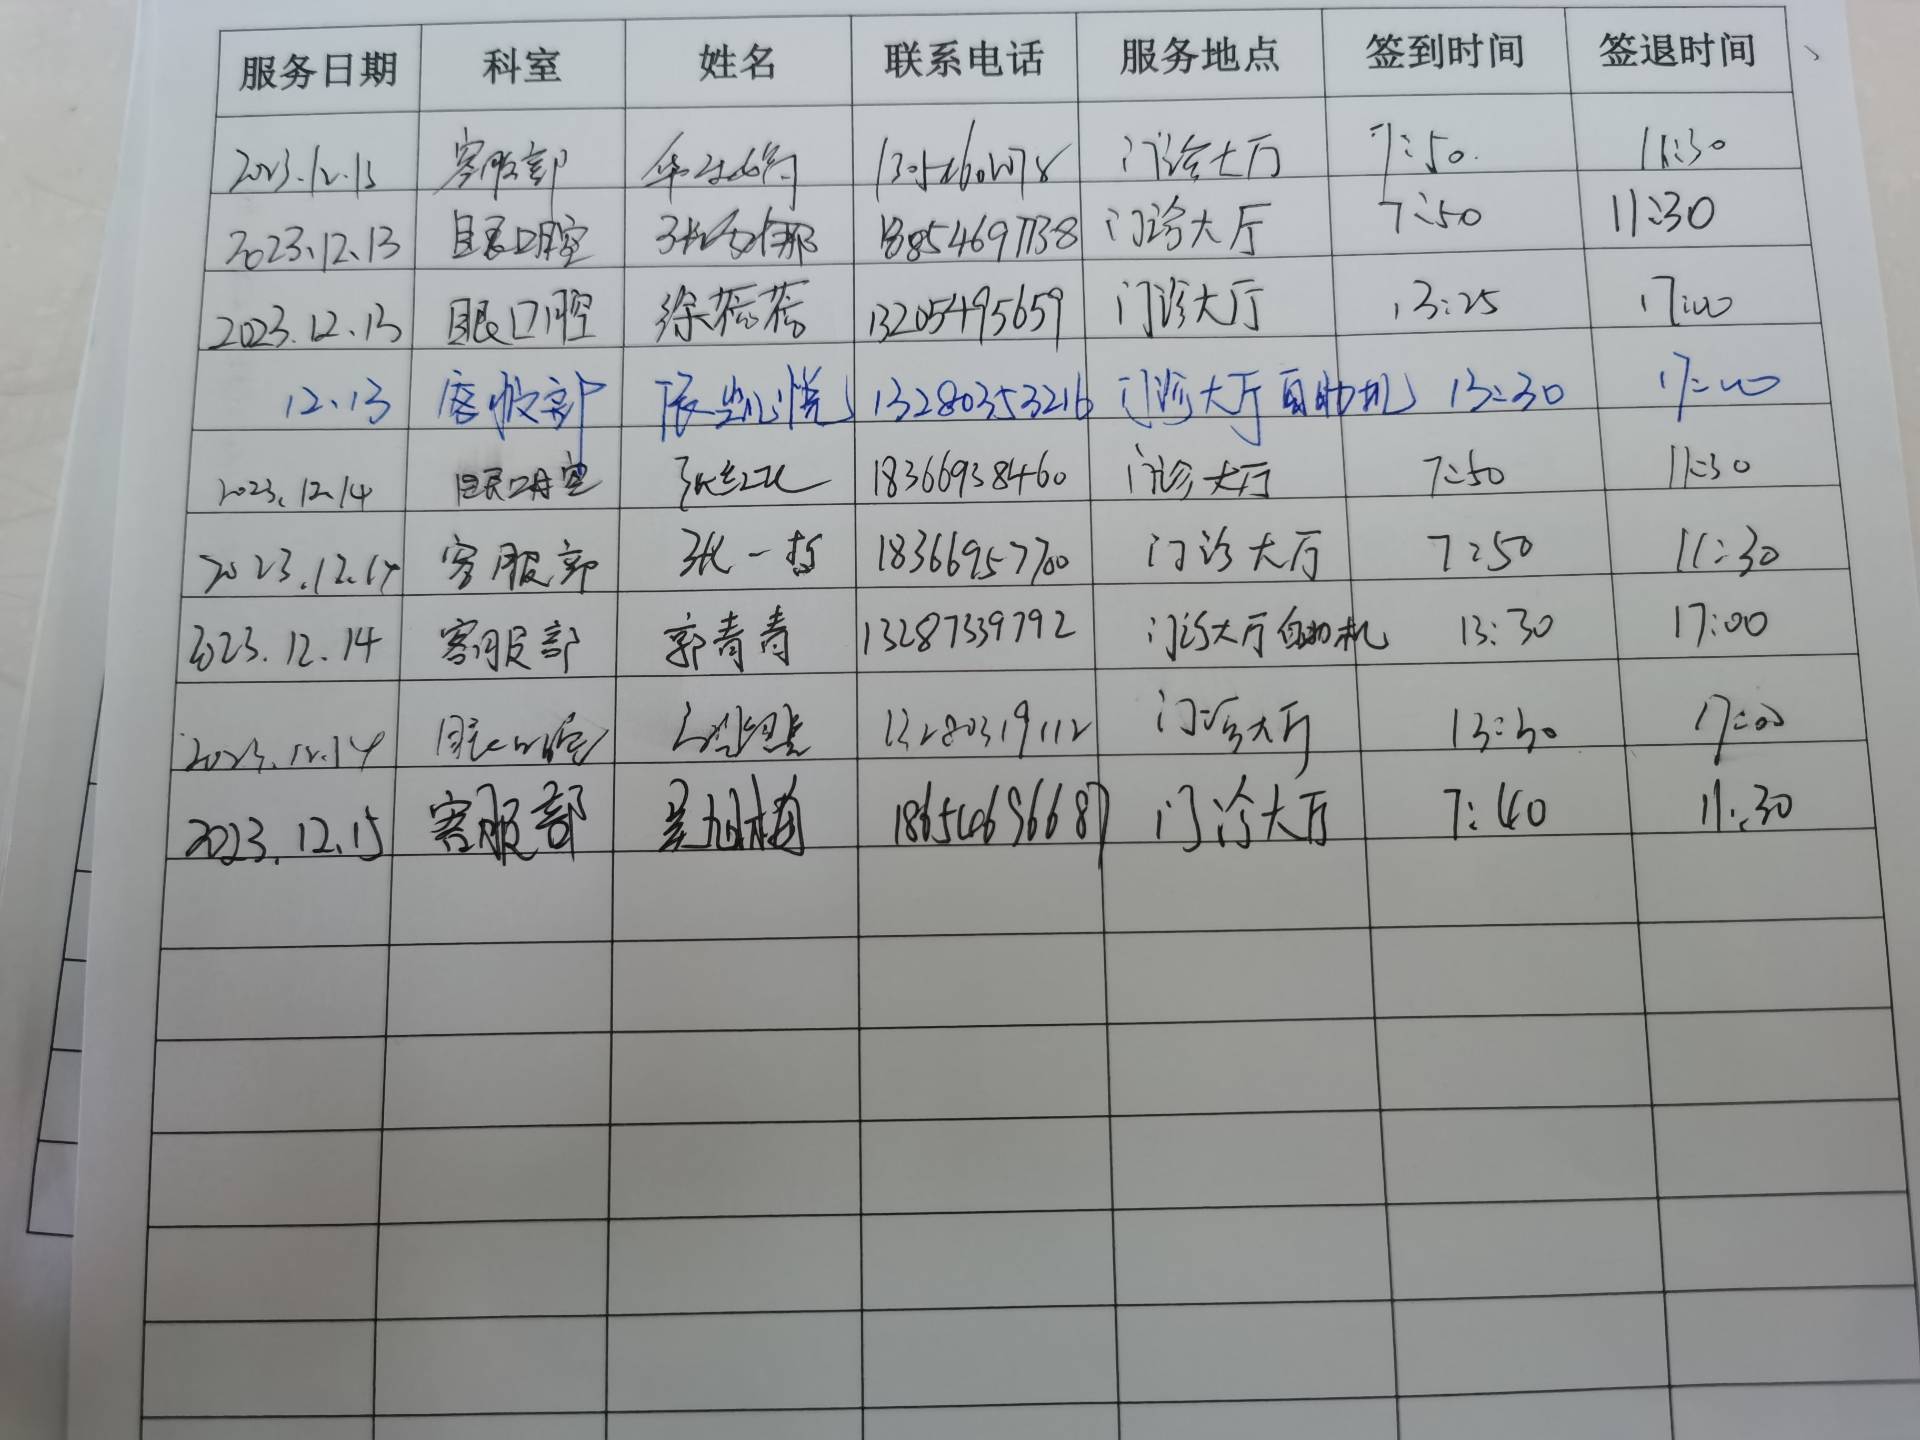 服务日期 科室 姓名 联系电话 服务地点 签到时间 签退时间
2023.12.13 客服部 门诊大厅 7:50 11:30
2023.12.13 眼口腔 18854697738 门诊大厅 7:50 11:30
2023.12.13 眼口腔 徐蓓蓓 13205495659 门诊大厅 13:25 17:00
12.13 客服部 13280353216 门诊大厅自助机 13:30 17:00
2023.12.14 眼口腔 18366938460 门诊大厅 7:50 11:30
2023.12.14 客服部 张一哲 18366957700 门诊大厅 7:50 11:30
2023.12.14 客服部 郭青青 13287339792 门诊大厅自助机 13:30 17:00
2023.12.14 眼口腔 13280319112 门诊大厅 13:30 17:00
2023.12.15 客服部 门诊大厅 7:40 11:30